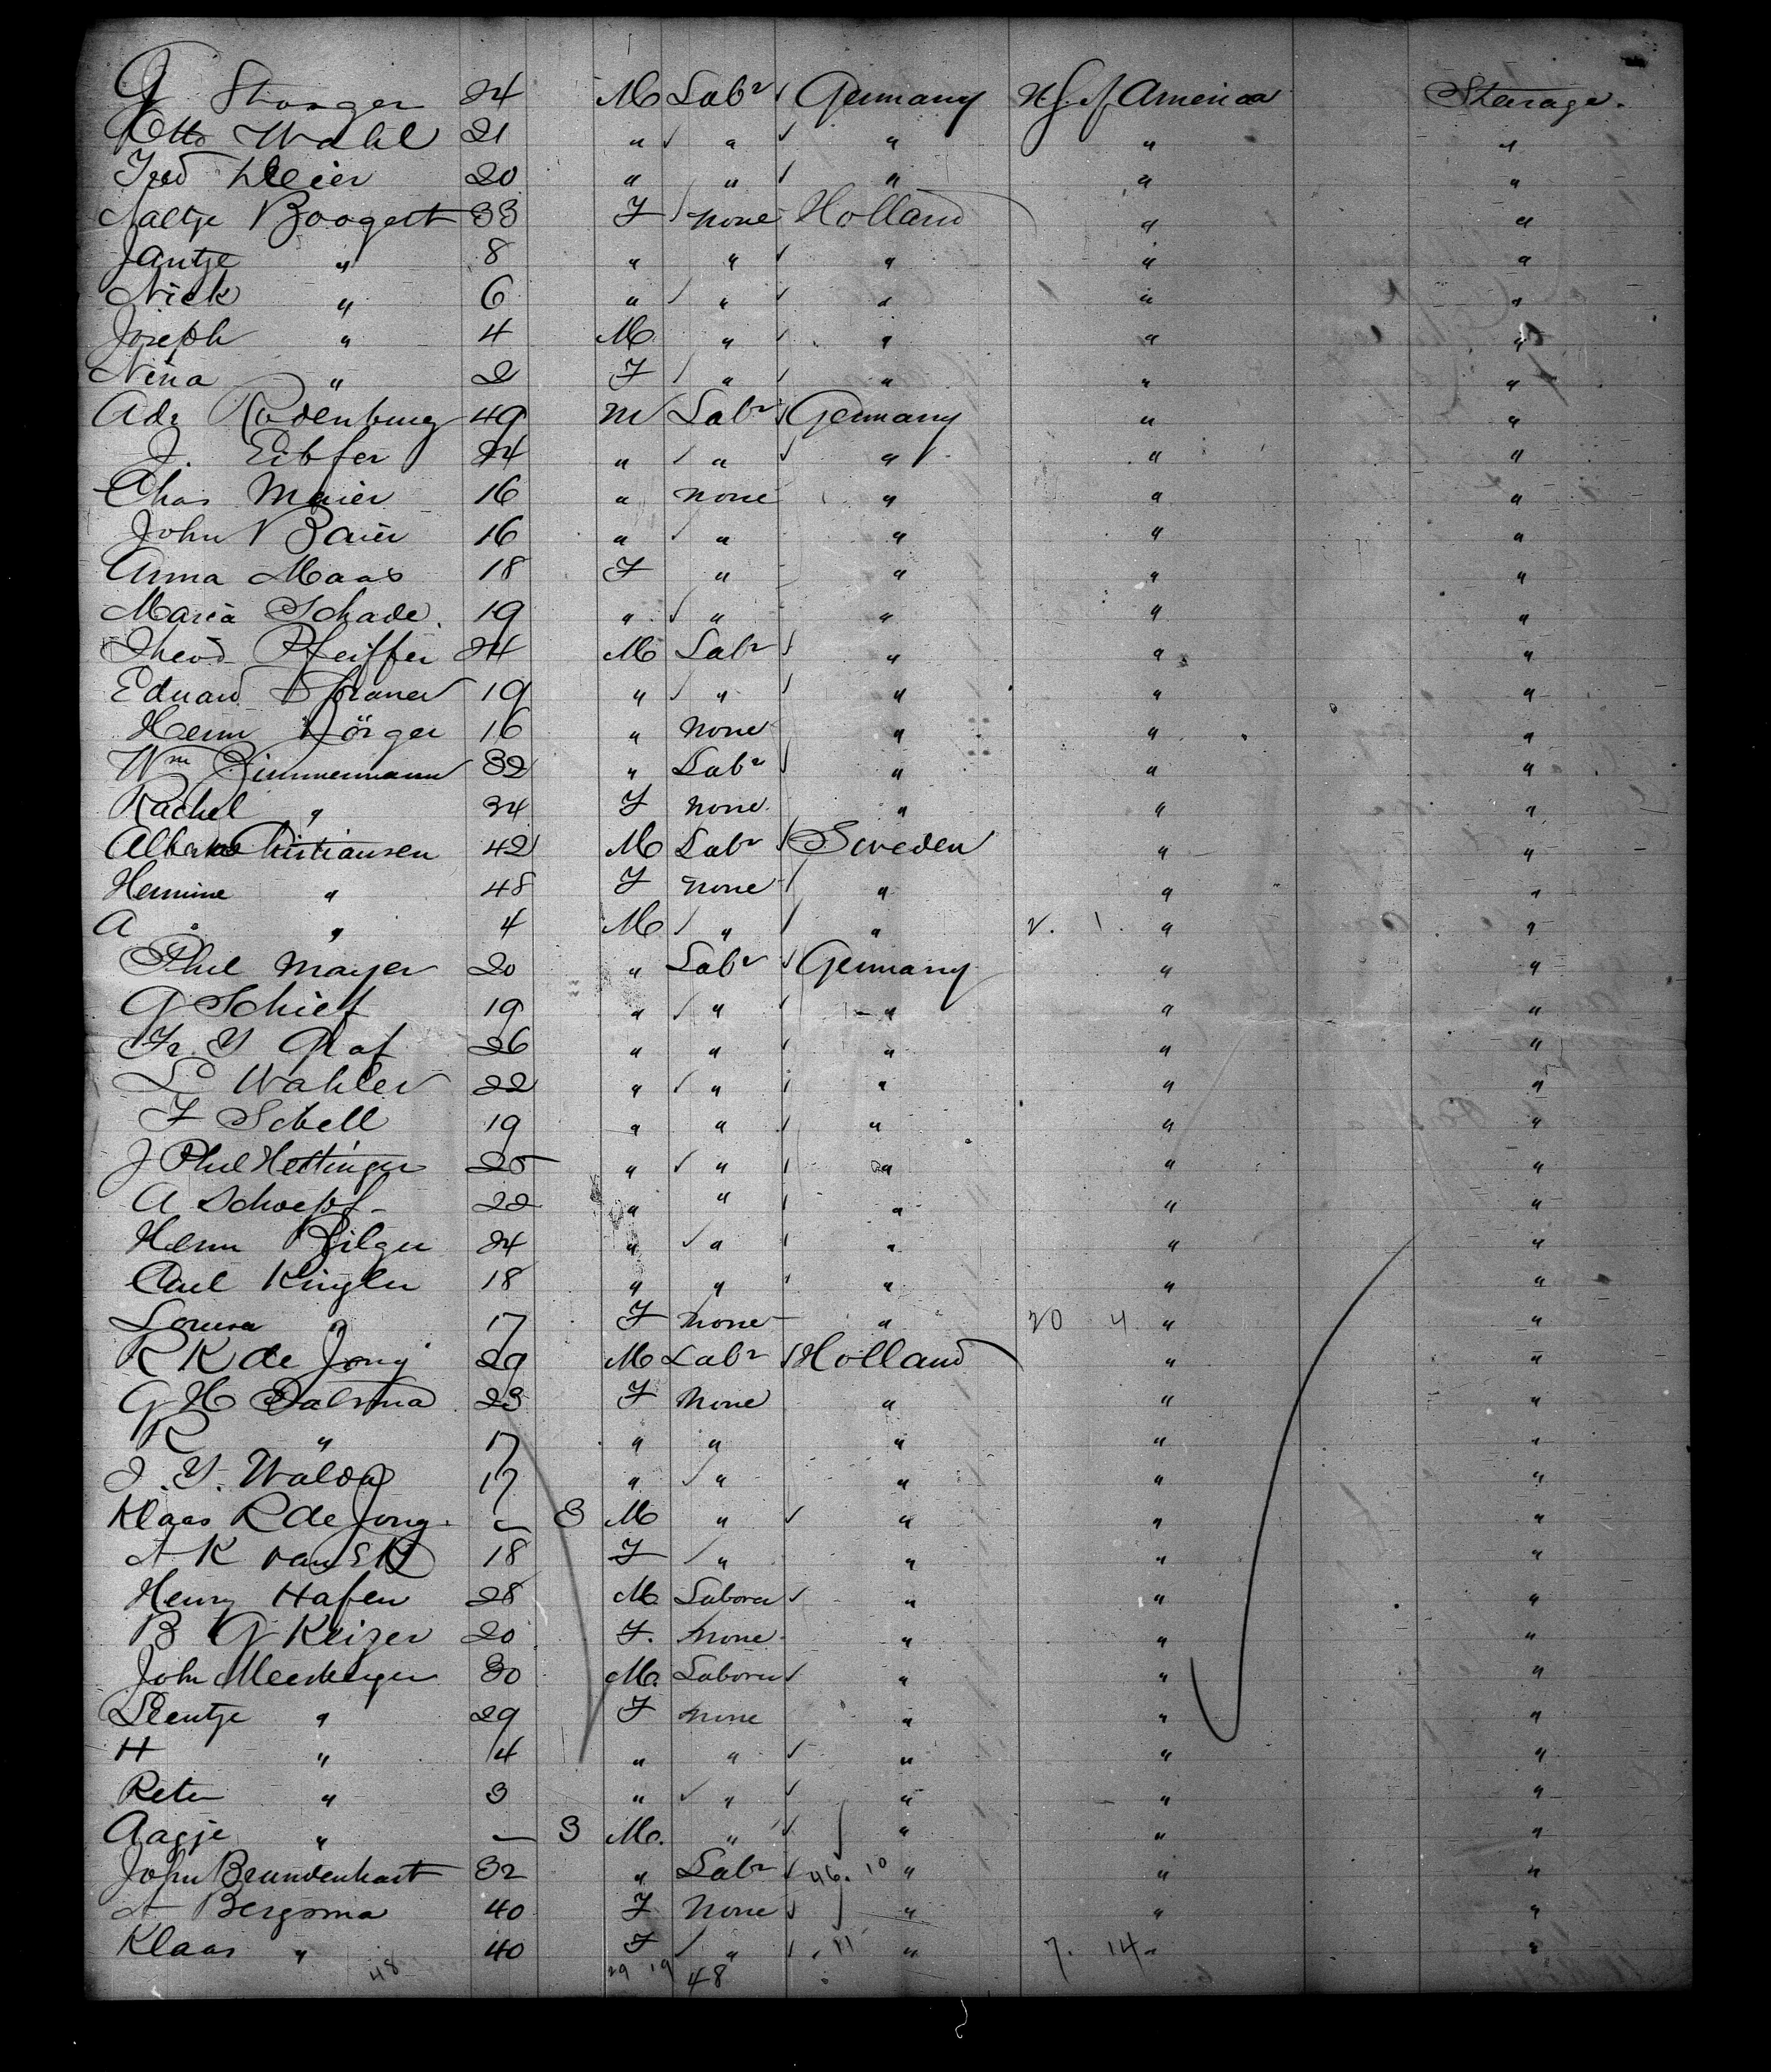 G Stonger 24 M Labr Germany U.S. of America Steerage.
Otto Wahl 21 " " " " "
Fred Meier 20 " " " " "
Aaltje Boogert 33 F none Holland " "
Jantje " 8 " " " " "
Nick " 6 " " " " "
Joseph " 4 M " " " "
Nina " 2 F " " " "
Adr Rodenburg 49 M Labr Germany " "
J. Eibfer 24 " " " " "
Chas Maier 16 " none " " "
John Baier 16 " " " " "
Anna Maas 18 F " " " "
Maria Schade. 19 " " " " "
Theod Pfeiffer 24 M Labr " " "
Eduard 19 " " " " "
Herm Körger 16 " none " " "
Wm Zimmermann 32 " Labr " " "
Rachel " 34 F none " " "
Christiansen 42 M Labr Sweden " "
Hermine " 48 F none " " "
A " 4 M " " 2. 1. " "
Phil Mayer 20 " Labr Germany " "
G Schief 19 " " " " "
Fr. Y Graf 26 " " " " "
L Wahler 22 " " " " "
F Schell 19 " " " " "
J Phil Hettinger 25 " " " " "
A Schoepf 22 " " " " "
Herm Bilger 24 " " " " "
Carl Kingler 18 " " " " "
Louisa " 17 F none " 20 4 " "
R K de Jong 29 M Labr Holland " "
G H Dalsma 23 F none " " "
R " 17 " " " " "
J. Y. Walda 17 " " " " "
Klaas R de Jong. 3 M " " " "
A K van Ek 18 F " " " "
Henry Hafen 28 M Laborer " " "
B G Keizer 20 F. none " " "
John Meerberger 30 M. Laborer " " "
Leentje " 29 F none " " "
H " 4 " " " " "
Peter " 3 " " " " "
Aagje " 3 M. " " " "
John Brundenhart 32 " Labr 46. 10 " " "
A Bergsma 40 F none " " "
Klaas " 40 F " 11 " 7. 14 " "
48 29 19 48